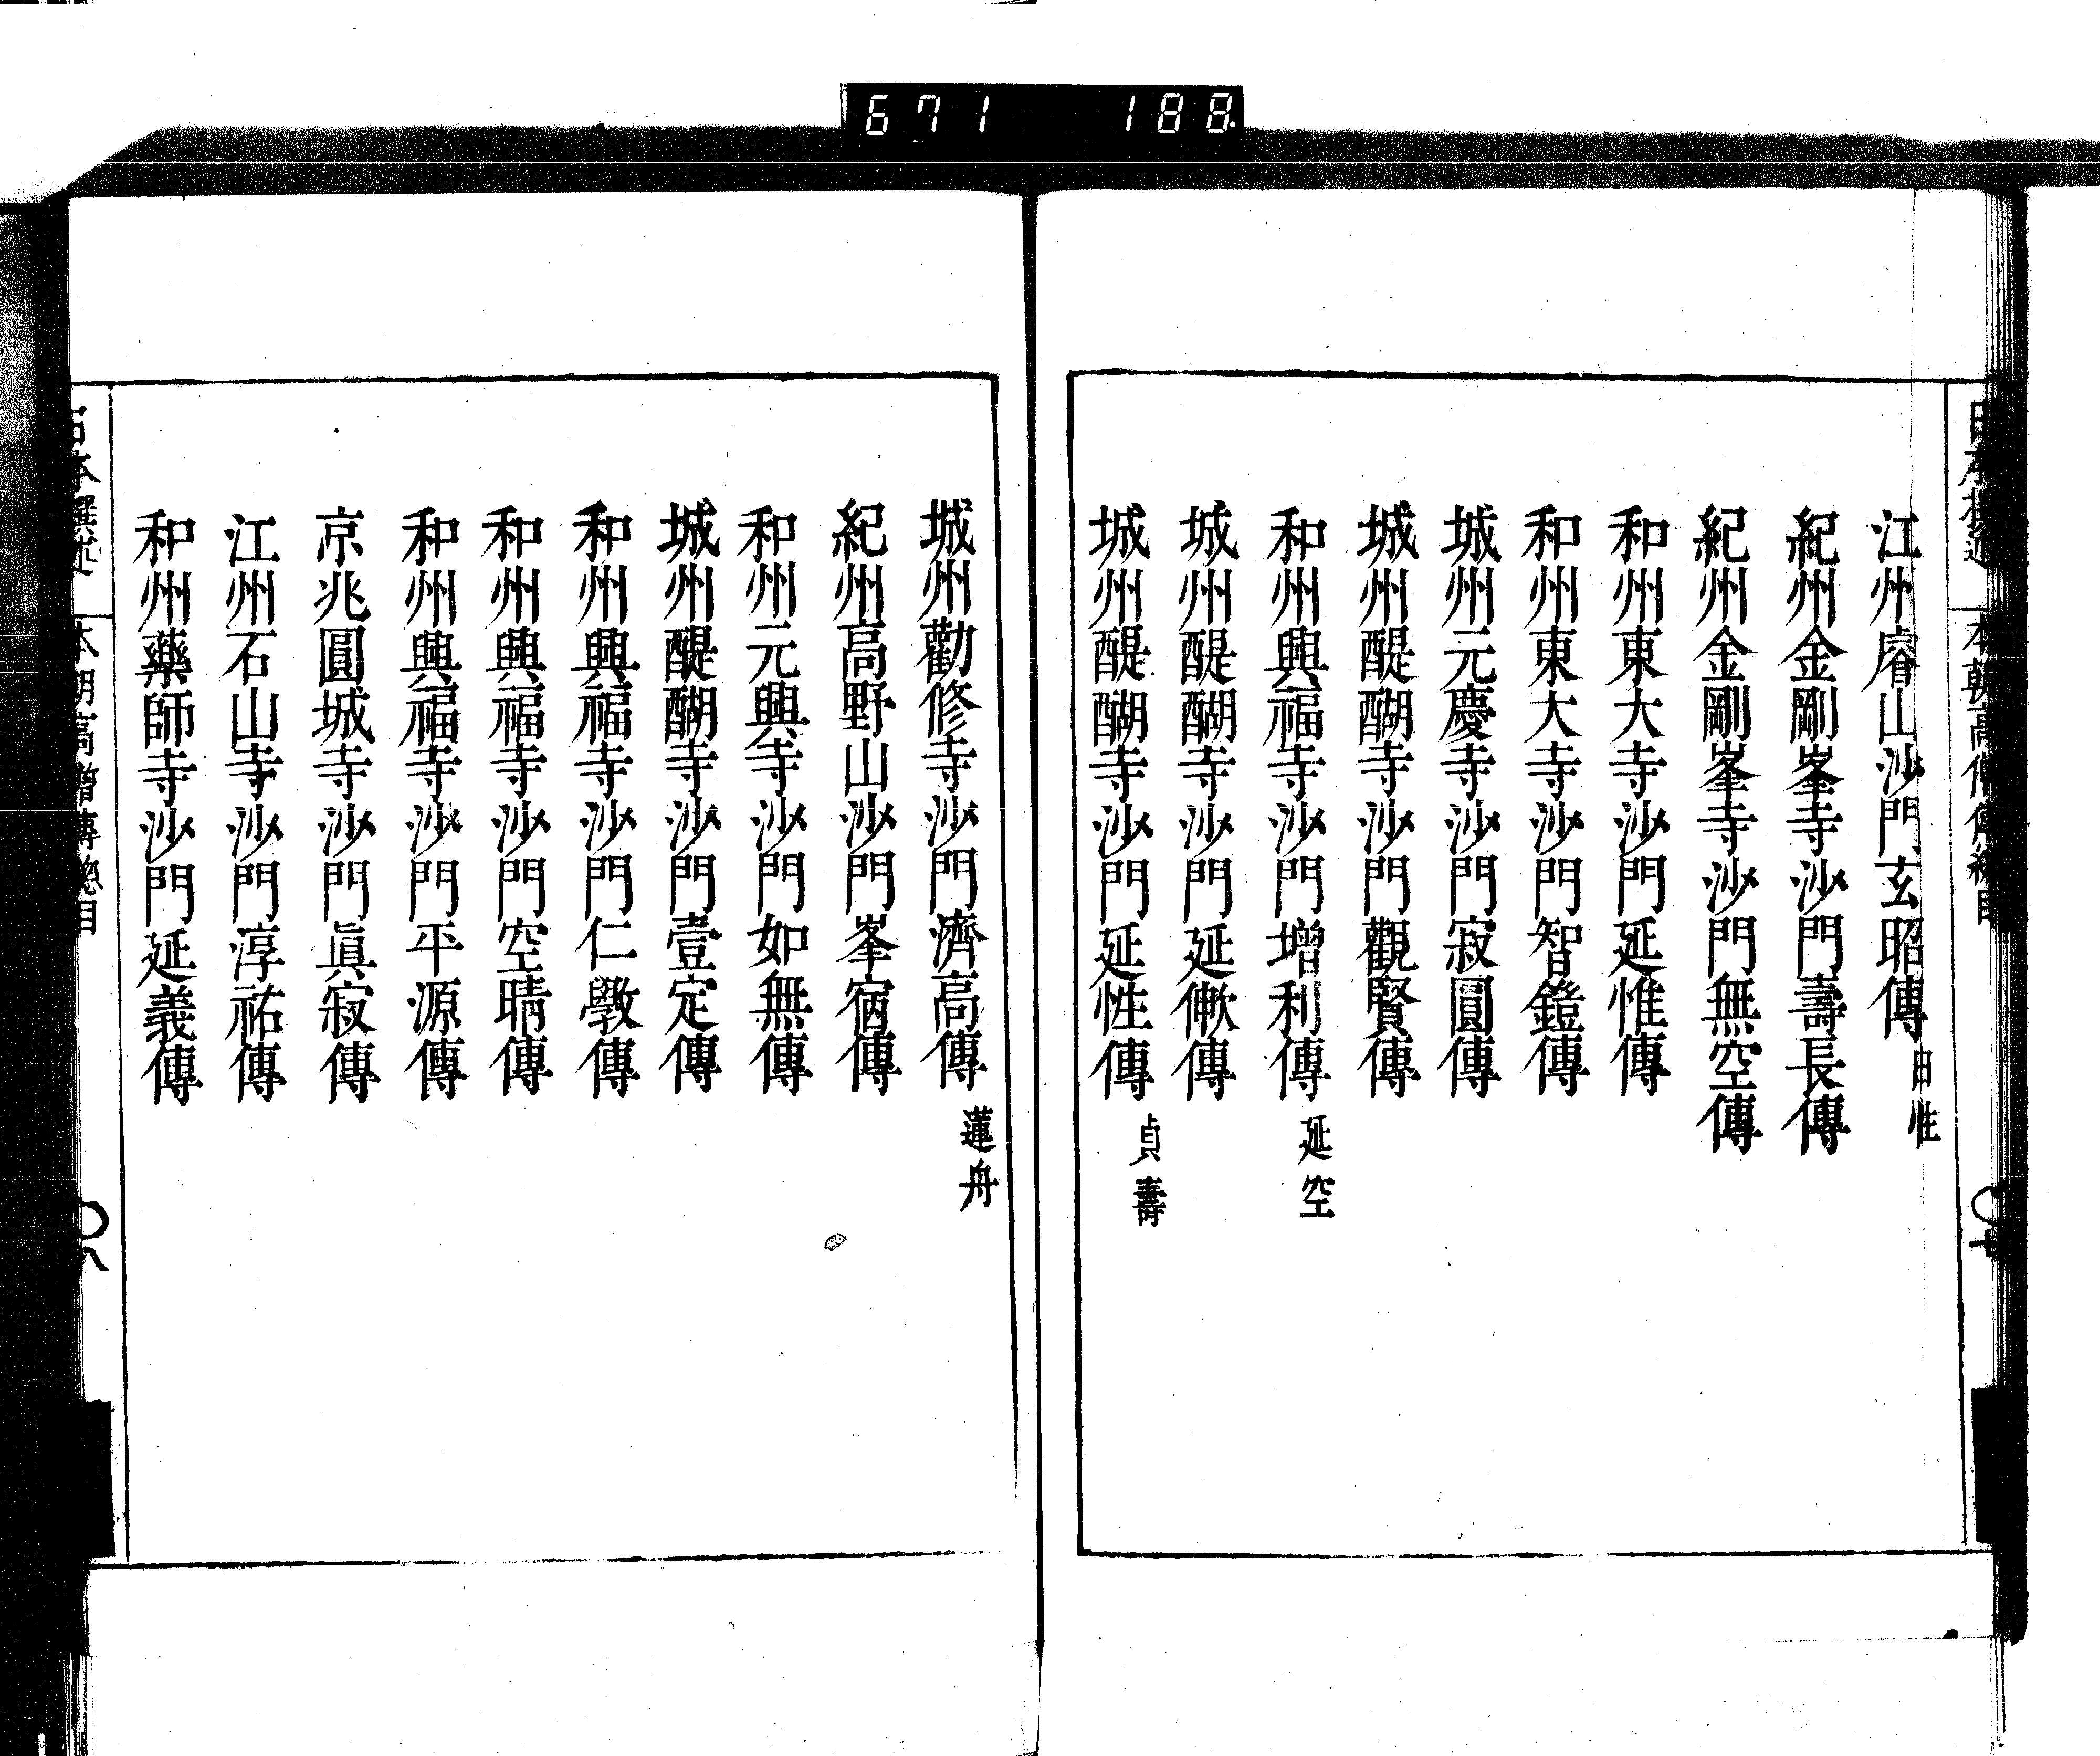 671 188
江州睿山沙門玄昭傳 由性
紀州金剛峯寺沙門壽長傳
紀州金剛峯寺沙門無空傳
和州東大寺沙門延惟傳
和州東大寺沙門智鎧傳
城州元慶寺沙門寂圓傳
城州醍醐寺沙門觀賢傳
和州興福寺沙門增利傳 延空
城州醍醐寺沙門延僌傳
城州醍醐寺沙門延性傳 貞壽
城州勸修寺沙門濟高傳 蓮舟
紀州高野山沙門峯宿傳
和州元興寺沙門如無傳
城州醍醐寺沙門壹定傳
和州興福寺沙門仁斆傳
和州興福寺沙門空晴傳
和州興福寺沙門平源傳
京兆圓城寺沙門眞寂傳
江州石山寺沙門淳祐傳
和州藥師寺沙門延義傳
日本撰述 本朝高僧傳總目 八